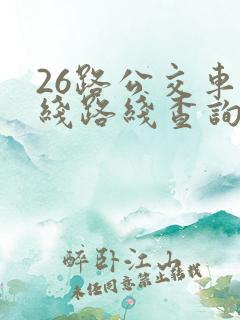 26路公交車
綫路綫查詢
醉卧江山
未经同意禁止转载